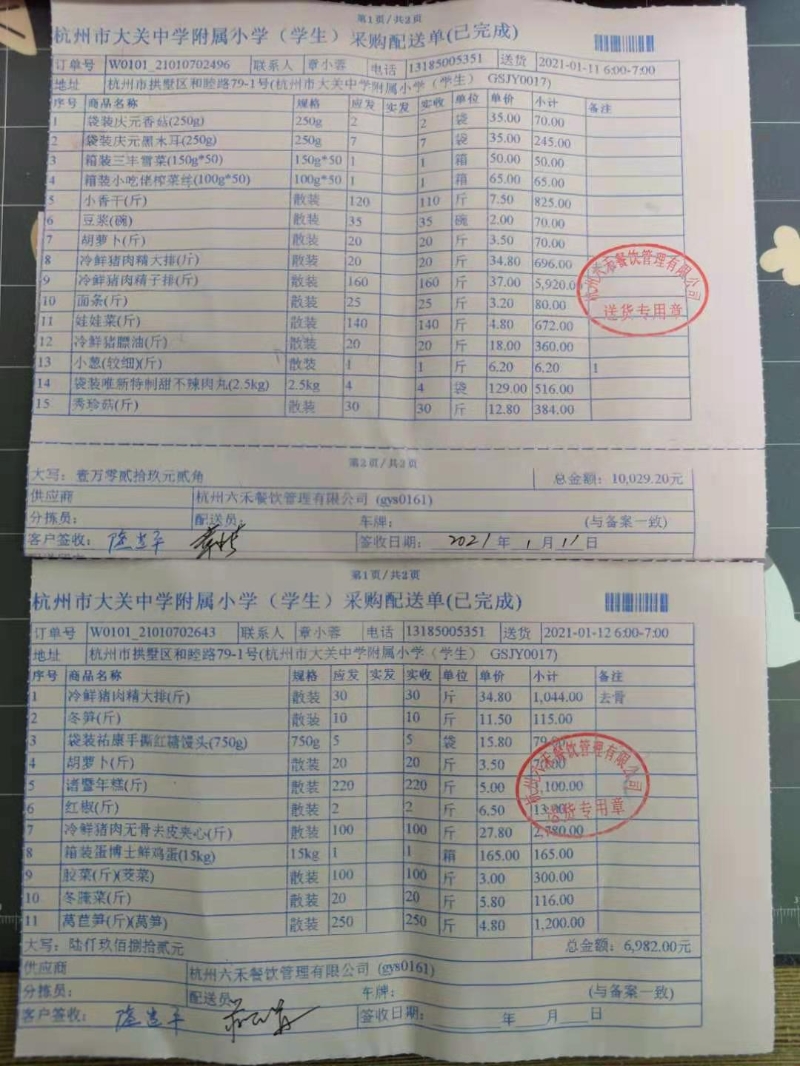 第1页/共2页
杭州市大关中学附属小学（学生）采购配送单(已完成)
订单号 W0101_21010702496 联系人 章小蓉 电话 13185005351 送货 2021-01-11 6:00-7:00
地址 杭州市拱墅区和睦路79-1号(杭州市大关中学附属小学（学生） GSJY0017)
序号 商品名称 规格 应发 实发 实收 单位 单价 小计 备注
1 袋装庆元香菇(250g) 250g 2 2 袋 35.00 70.00
2 袋装庆元黑木耳(250g) 250g 7 7 袋 35.00 245.00
3 箱装三丰雪菜(150g*50) 150g*50 1 1 箱 50.00 50.00
4 箱装小吃佬榨菜丝(100g*50) 100g*50 1 1 箱 65.00 65.00
5 小香干(斤) 散装 120 110 斤 7.50 825.00
6 豆浆(碗) 散装 35 35 碗 2.00 70.00
7 胡萝卜(斤) 散装 20 20 斤 3.50 70.00
8 冷鲜猪肉精大排(斤) 散装 20 20 斤 34.80 696.00
9 冷鲜猪肉精子排(斤) 散装 160 160 斤 37.00 5,920.00
10 面条(斤) 散装 25 25 斤 3.20 80.00
11 娃娃菜(斤) 散装 140 140 斤 4.80 672.00
12 冷鲜猪膘油(斤) 散装 20 20 斤 18.00 360.00
13 小葱(较细)(斤) 散装 1 1 斤 6.20 6.20 1
14 袋装唯新特制甜不辣肉丸(2.5kg) 2.5kg 4 4 袋 129.00 516.00
15 秀珍菇(斤) 散装 30 30 斤 12.80 384.00
杭州六禾餐饮管理有限公司
送货专用章
第2页/共2页
大写：壹万零贰拾玖元贰角 总金额：10,029.20元
供应商 杭州六禾餐饮管理有限公司 (gys0161)
分拣员： 配送员： 车牌： (与备案一致)
客户签收： 签收日期： 2021 年 1 月 11 日
第1页/共2页
杭州市大关中学附属小学（学生）采购配送单(已完成)
订单号 W0101_21010702643 联系人 章小蓉 电话 13185005351 送货 2021-01-12 6:00-7:00
地址 杭州市拱墅区和睦路79-1号(杭州市大关中学附属小学（学生） GSJY0017)
序号 商品名称 规格 应发 实发 实收 单位 单价 小计 备注
1 冷鲜猪肉精大排(斤) 散装 30 30 斤 34.80 1,044.00 去骨
2 冬笋(斤) 散装 10 10 斤 11.50 115.00
3 袋装祐康手撕红糖馒头(750g) 750g 5 5 袋 15.80 79.00
4 胡萝卜(斤) 散装 20 20 斤 3.50 70.00
5 诸暨年糕(斤) 散装 220 220 斤 5.00 1,100.00
6 红椒(斤) 散装 2 2 斤 6.50 13.00
7 冷鲜猪肉无骨去皮夹心(斤) 散装 100 100 斤 27.80 2,780.00
8 箱装蛋博士鲜鸡蛋(15kg) 15kg 1 1 箱 165.00 165.00
9 胶菜(斤)(茭菜) 散装 100 100 斤 3.00 300.00
10 冬腌菜(斤) 散装 20 20 斤 5.80 116.00
11 莴苣笋(斤)(莴笋) 散装 250 250 斤 4.80 1,200.00
杭州六禾餐饮管理有限公司
送货专用章
大写：陆仟玖佰捌拾贰元 总金额：6,982.00元
供应商 杭州六禾餐饮管理有限公司 (gys0161)
分拣员： 配送员： 车牌： (与备案一致)
客户签收： 签收日期： 年 月 日